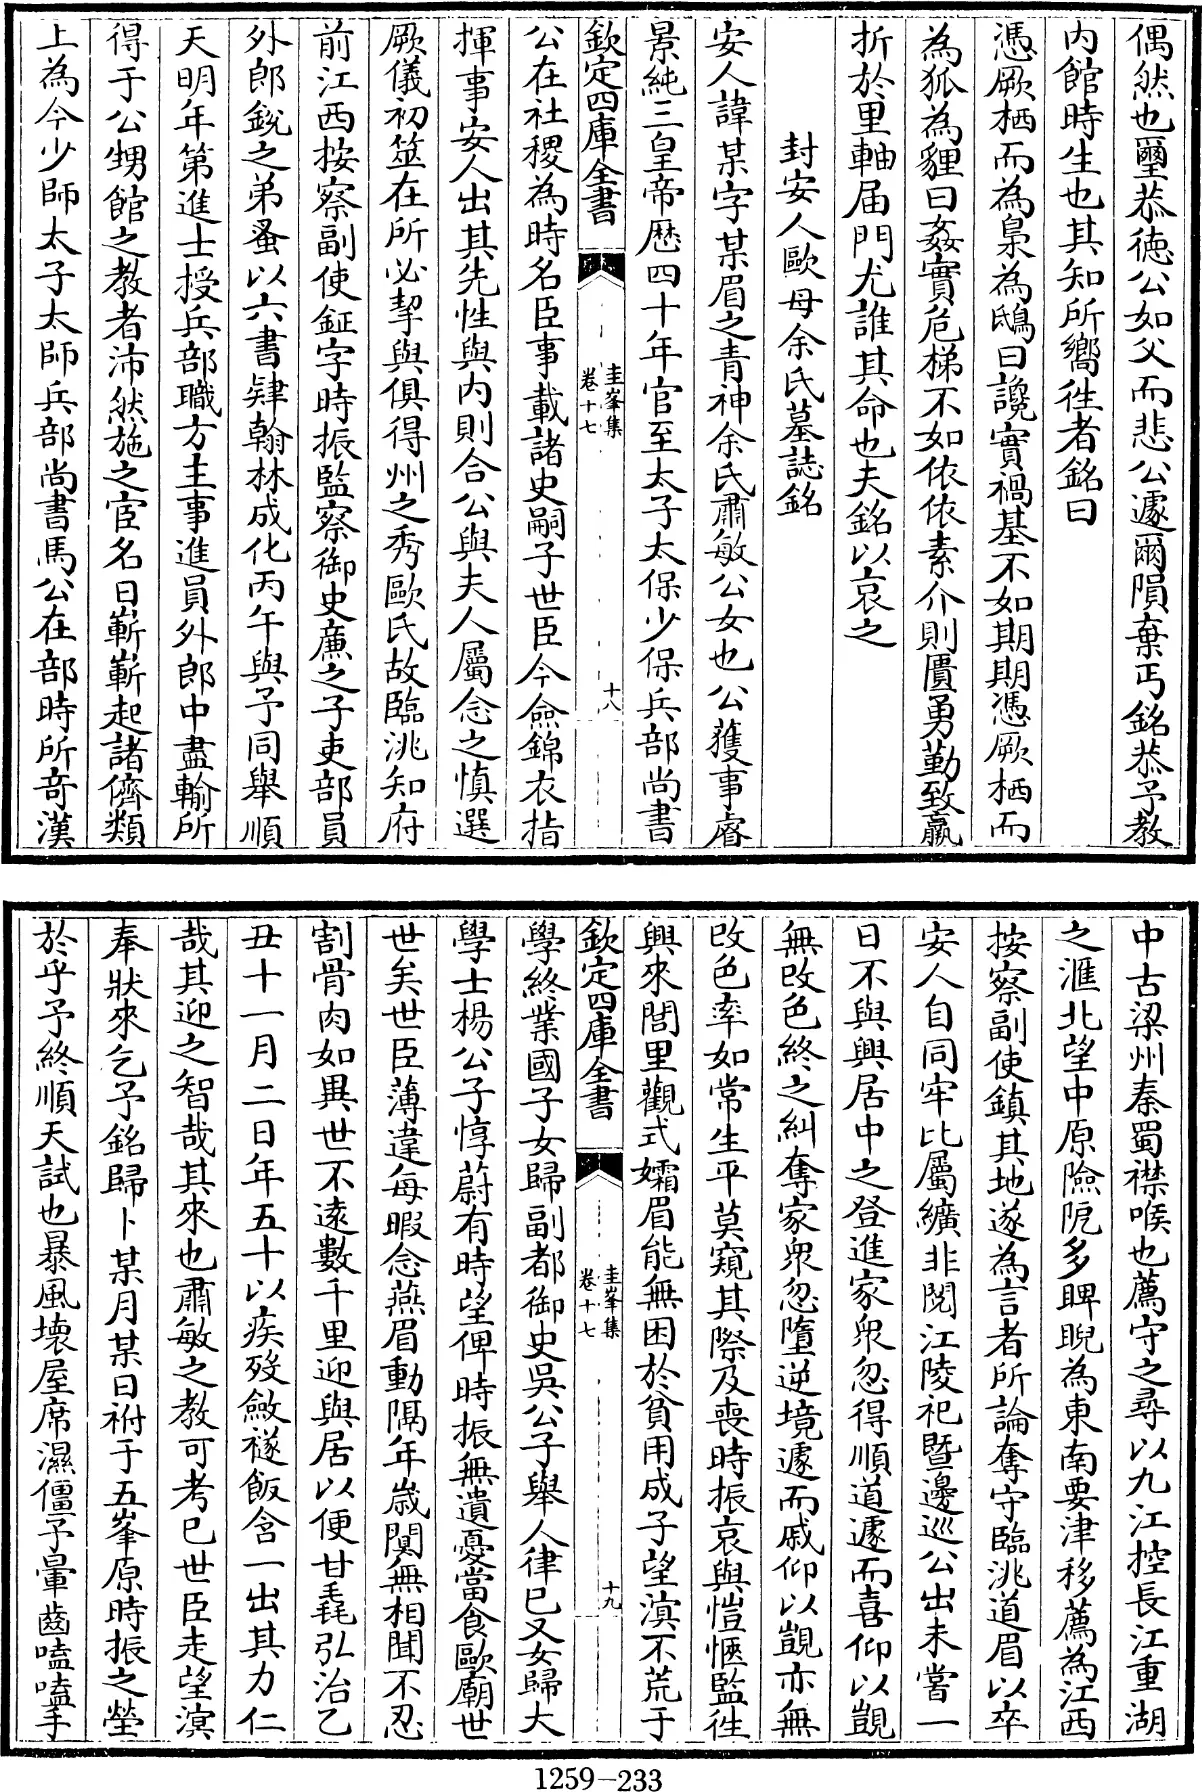 偶然也璽恭徳公如父而悲公遽爾隕棄丐銘恭予教
内館時生也其知所嚮徃者銘曰
憑厥栖而為梟為鴟曰讒實禍基不如期期憑厥栖而
為狐為貍曰姦實危梯不如依依素介則匱勇勤致羸
折於里軸届門尤誰其命也夫銘以哀之
封安人歐母余氏墓誌銘
安人諱某字某眉之青神余氏肅敏公女也公獲事睿
景純三皇帝歴四十年官至太子太保少保兵部尚書
欽定四庫全書
圭峯集
卷十七
十八
公在社稷為時名臣事載諸史嗣子世臣今僉錦衣指
揮事安人出其先性與内則合公與夫人屬念之慎選
厥儀初筮在所必挈與俱得州之秀歐氏故臨洮知府
前江西按察副使鉦字時振監察御史廉之子吏部員
外郎鋭之弟蚤以六書肄翰林成化丙午與予同舉順
天明年第進士授兵部職方主事進員外郎中盡輸所
得于公甥館之教者沛然施之宦名日嶄嶄起諸儕類
上為今少師太子太師兵部尚書馬公在部時所竒漢
中古梁州秦蜀襟喉也薦守之尋以九江控長江重湖
之滙北望中原險阨多睥睨為東南要津移薦為江西
按察副使鎮其地遂為言者所論奪守臨洮道眉以卒
安人自同牢比屬纊非閲江陵祀暨邊巡公出未嘗一
日不與興居中之登進家衆忽得順道遽而喜仰以覬
無改色終之糾奪家衆忽墮逆境遽而戚仰以覬亦無
改色率如常生平莫窺其際及喪時振哀與愷愜監徃
興來閭里觀式孀眉能無困於貧用成子望滇不荒于
欽定四庫全書
圭峯集
卷十七
十九
學終業國子女歸副都御史吳公子舉人律巳又女歸大
學士楊公子惇蔚有時望俾時振無遺憂當食歐廟世
世矣世臣薄違每暇念燕眉動隔年歳闃無相聞不忍
割骨肉如異世不遠數千里迎與居以便甘毳弘治乙
丑十一月二日年五十以疾殁斂襚飯含一出其力仁
哉其迎之智哉其來也肅敏之教可考巳世臣走望滇
奉狀來乞予銘歸卜某月某日祔于五峯原時振之塋
於乎予終順天試也暴風壊屋席濕僵予暈齒嗑嗑手
1259—233